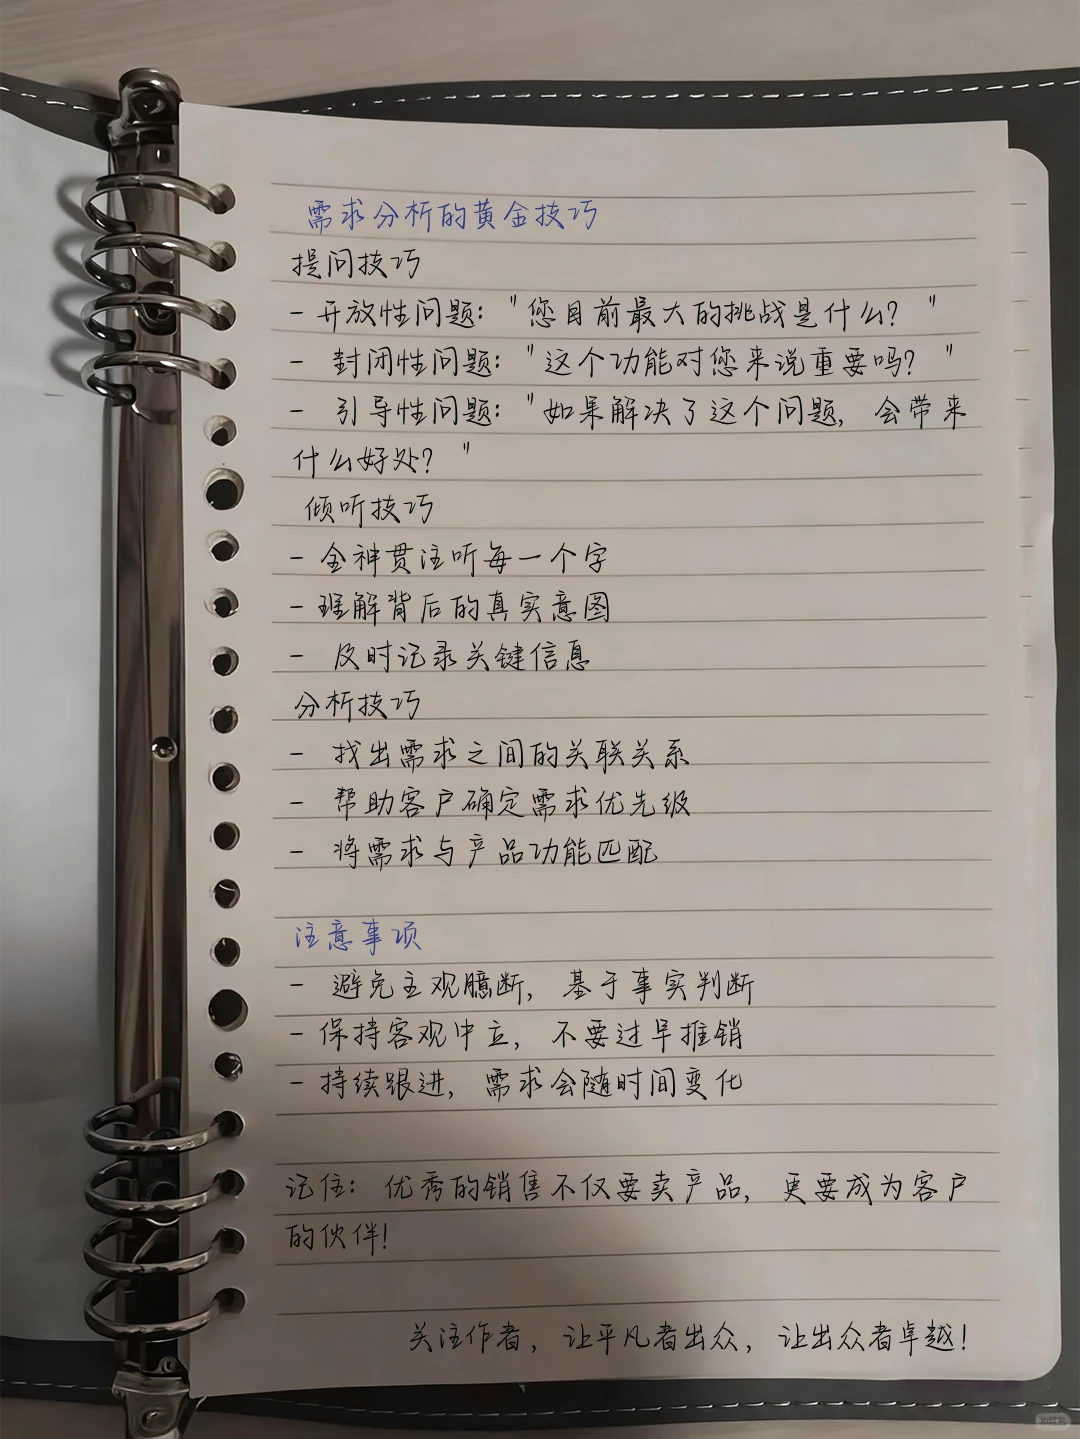 需求分析的黄金技巧
提问技巧
- 开放性问题: "您目前最大的挑战是什么? "
- 封闭性问题: "这个功能对您来说重要吗? "
- 引导性问题: "如果解决了这个问题, 会带来
什么好处? "
倾听技巧
- 全神贯注听每一个字
- 理解背后的真实意图
- 及时记录关键信息
分析技巧
- 找出需求之间的关联关系
- 帮助客户确定需求优先级
- 将需求与产品功能匹配
注意事项
- 避免主观臆断, 基于事实判断
- 保持客观中立, 不要过早推销
- 持续跟进, 需求会随时间变化
记住: 优秀的销售不仅要卖产品, 更要成为客户
的伙伴!
关注作者, 让平凡者出众, 让出众者卓越!